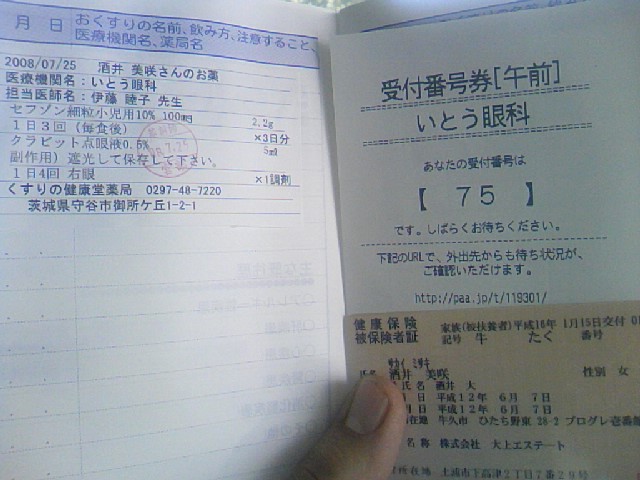 月 日
おくすりの名前、飲み方、注意すること、
医療機関名、薬局名
2008/07/25 酒井 美咲さんのお薬
医療機関名：いとう眼科
担当医師名：伊藤 睦子 先生
セフゾン細粒小児用10% 100mg 2.2g
1日3回（毎食後） ×3日分
クラビット点眼液0.5% 5ml
副作用）遮光して保存して下さい。
1日4回 右眼 ×1調剤
くすりの健康堂薬局 0297-48-7220
茨城県守谷市御所ケ丘1-2-1
受付番号券[午前]
いとう眼科
あなたの受付番号は
【 75 】
です。しばらくお待ちください。
下記のURLで、外出先からも待ち状況が、
ご確認いただけます。
http://paa.jp/t/119301/
健康保険 家族(被扶養者) 平成16年 1月15日交付
被保険者証 記号 牛 たく 番号
ｻｶｲ ﾐｻｷ
氏名 酒井 美咲 性別 女
氏名 酒井 大
日 平成12年 6月 7日
日 平成12年 6月 7日
在地 牛久市 ひたち野東 38-2 プログレ壱番館
名称 株式会社 大上エステート
所在地 土浦市下高津2丁目7番29号